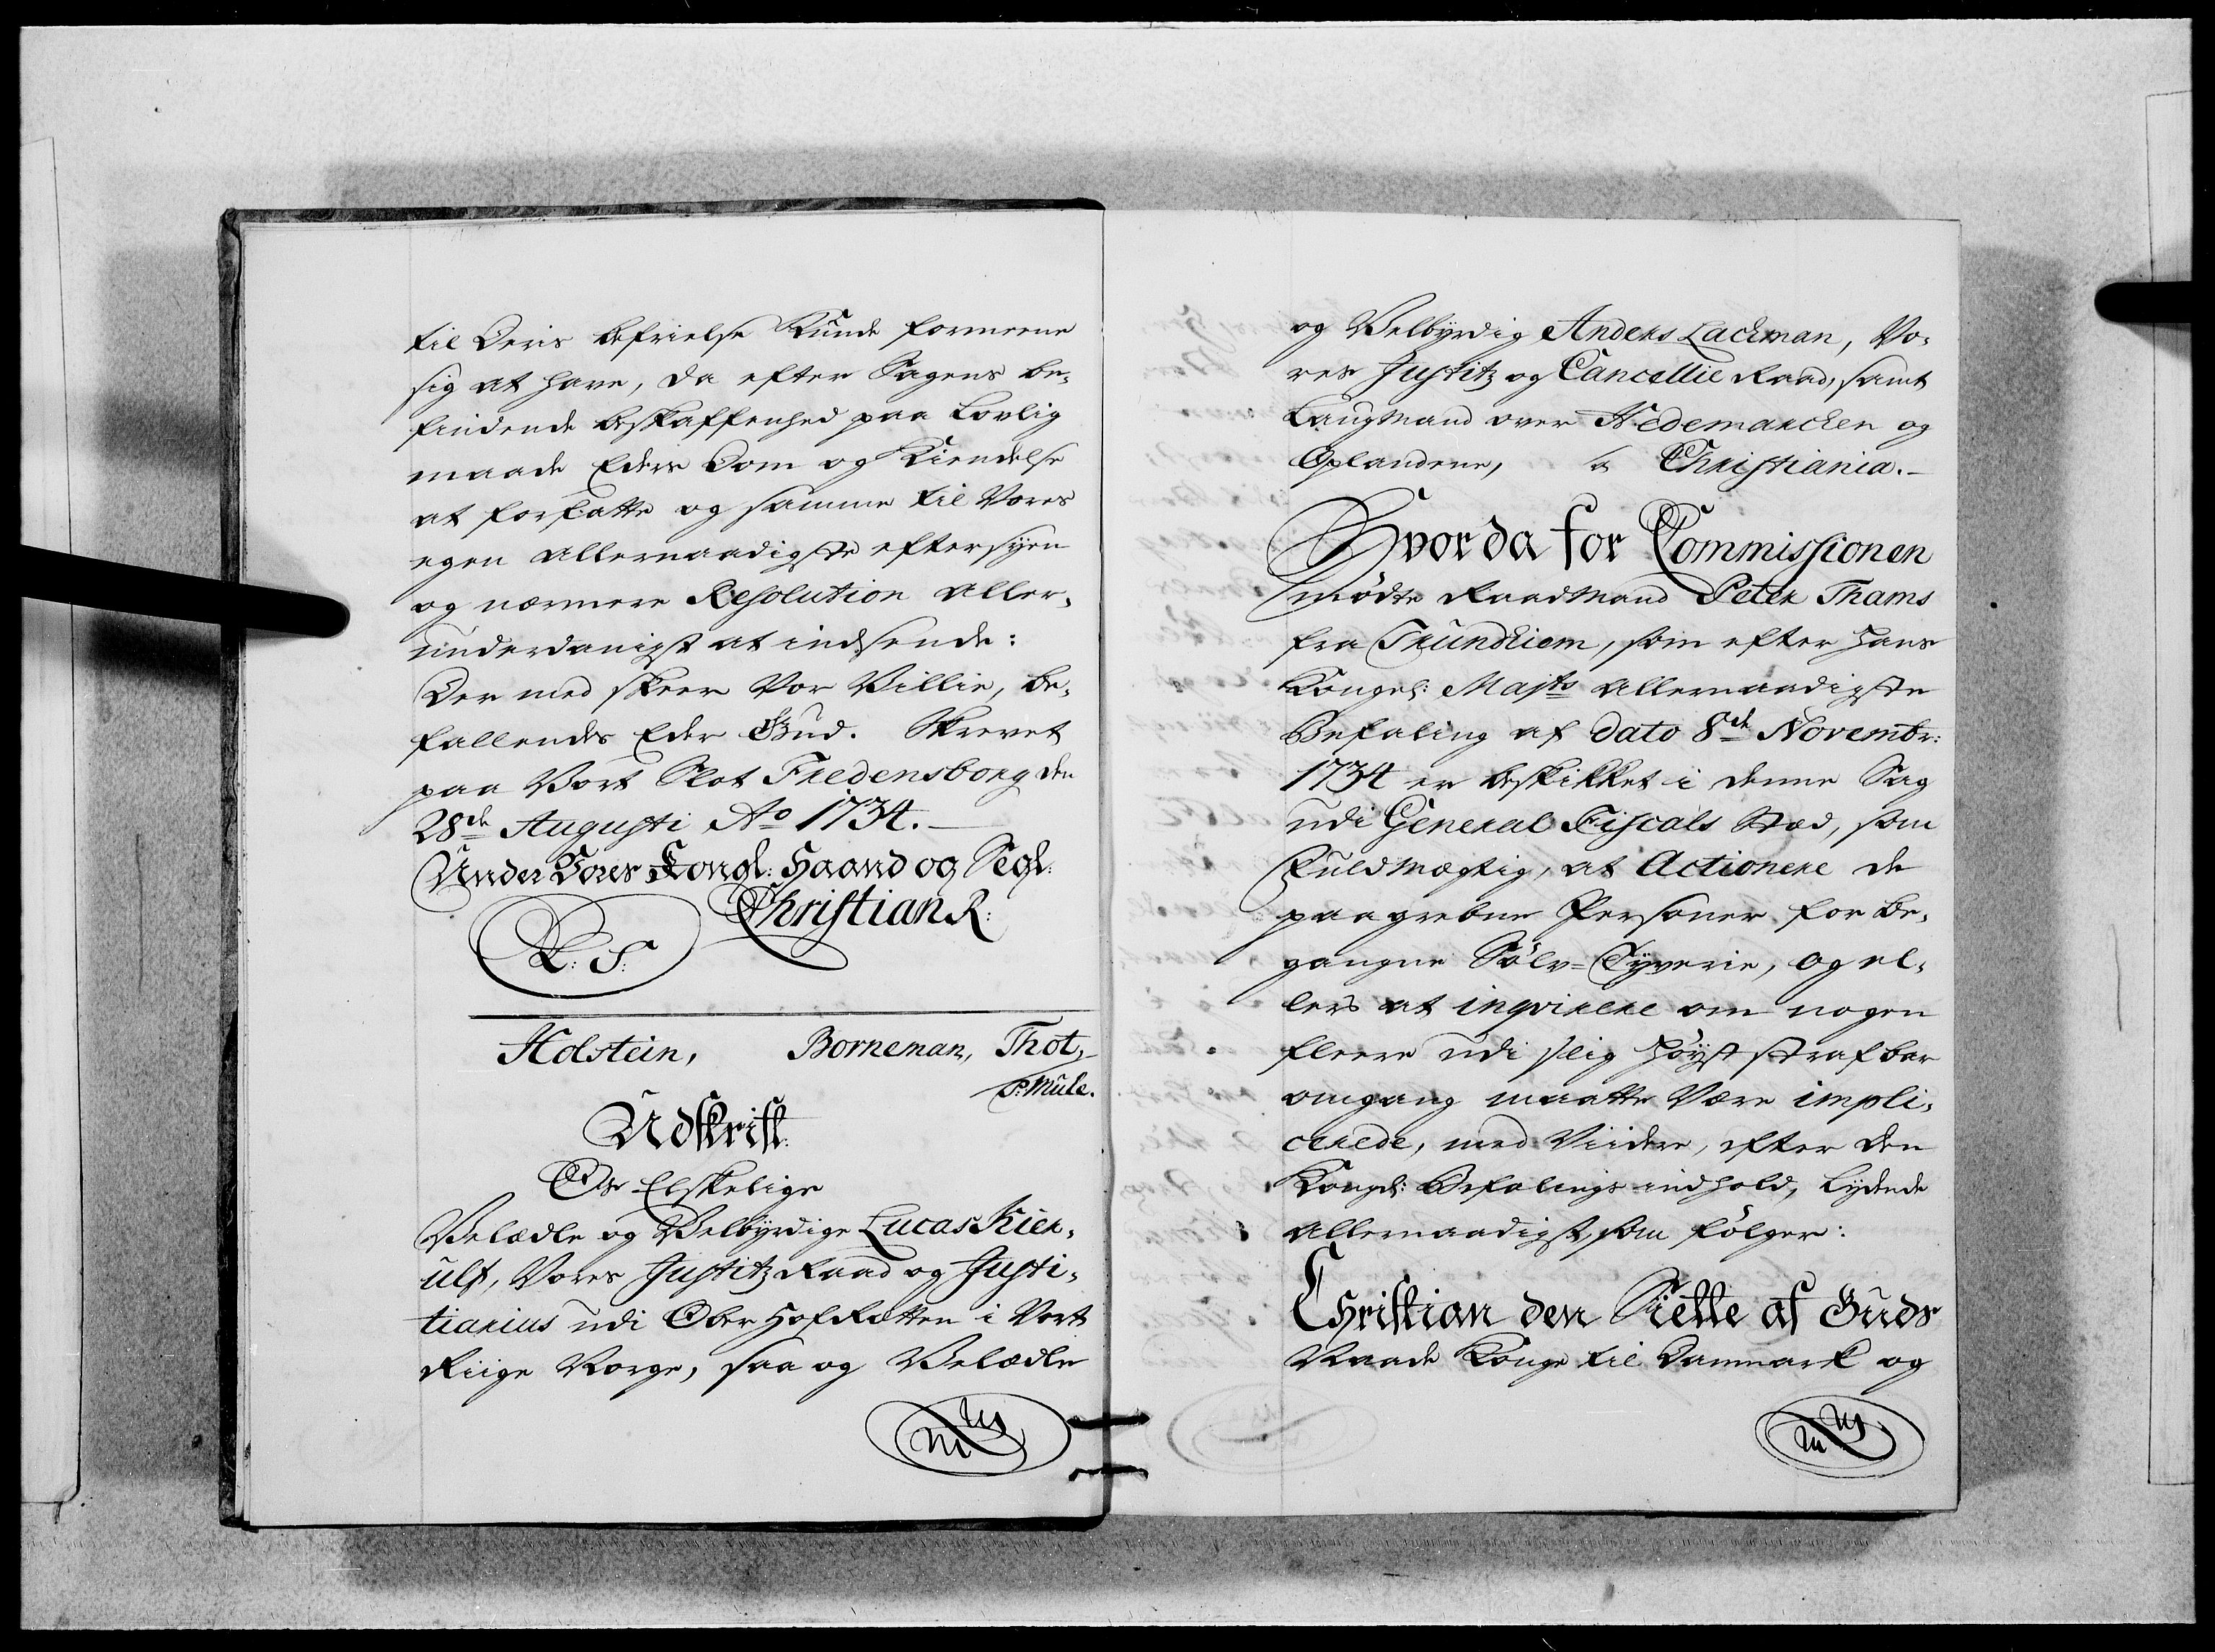 til Deris befrielse Kunde formeene
sig at have, da efter Sagens be-
findende beskaffenhed paa Lovlig
maade Eders Dom og Kiendelse
at forfatte og samme til Vores
egen allernaadigste eftersyen
og nærmere Resolution aller-
underdanigst at indsende:
Der med skeer Vor Villie, be-
fallendes Eder Gud. Skrevet
paa Vort Slot Fredensborg den
28de Augusti Ao 1734.
Under Vores Kongl: Haand og Segl:
Christian R:
L: S:
Holstein, Borneman, Thot,
P: Mule.
Udskrift:
Os Elskelige
Velædle og Velbyrdige Lucas Kier-
ulf, Vores Justitz Raad og Justi-
tiarius udi Ober Hof Retten i Vort
Riige Norge, saa og Velædle
og Velbyrdig Anders Lachman, Vo-
res Justitz og Cancellie Raad, samt
Laugmand over Hedemarchen og
Oplandene, a Christiania.
Hvor da for Commissionen
mødte Raadmand Peter Thams
fra Trundhiem, som efter Hans
Kongel: Majts allernaadigste
Befaling af dato 8de Novembr:
1734 er beskikket i denne Sag
udi General Fiscals Stæd, som
Fuldmægtig, at Actionere de
paagrebne Personer for be-
gangne Sølv=Tyverie, og el-
lers at inqvirere om nogen
fleere udi slig Høyst strafbar
omgang maatte Være impli-
cerede, med Viidere, efter den
Kongel: Befalings indhold, lydende
allernaadigst, som følger:
Christian den Siette af Guds
Naade Konge til Danmark og